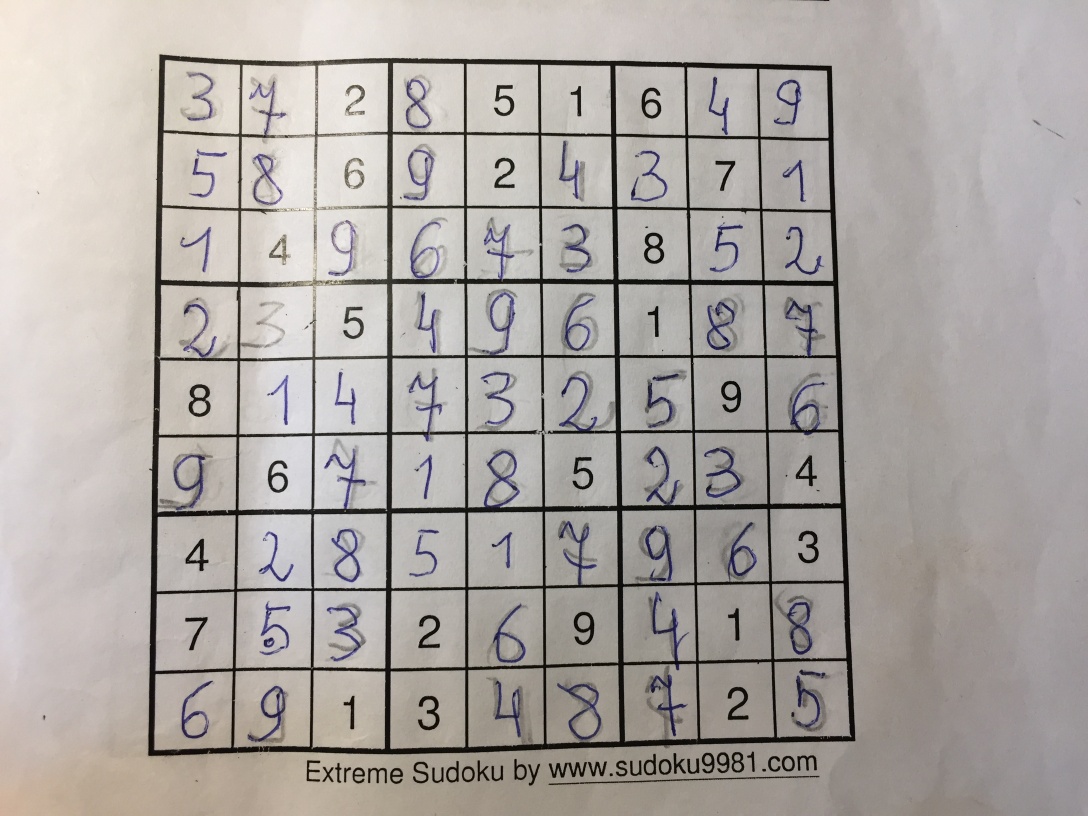 3 7 2 8 5 1 6 4 9
5 8 6 9 2 4 3 7 1
1 4 9 6 7 3 8 5 2
2 3 5 4 9 6 1 8 7
8 1 4 7 3 2 5 9 6
9 6 7 1 8 5 2 3 4
4 2 8 5 1 7 9 6 3
7 5 3 2 6 9 4 1 8
6 9 1 3 4 8 7 2 5
Extreme Sudoku by www.sudoku9981.com